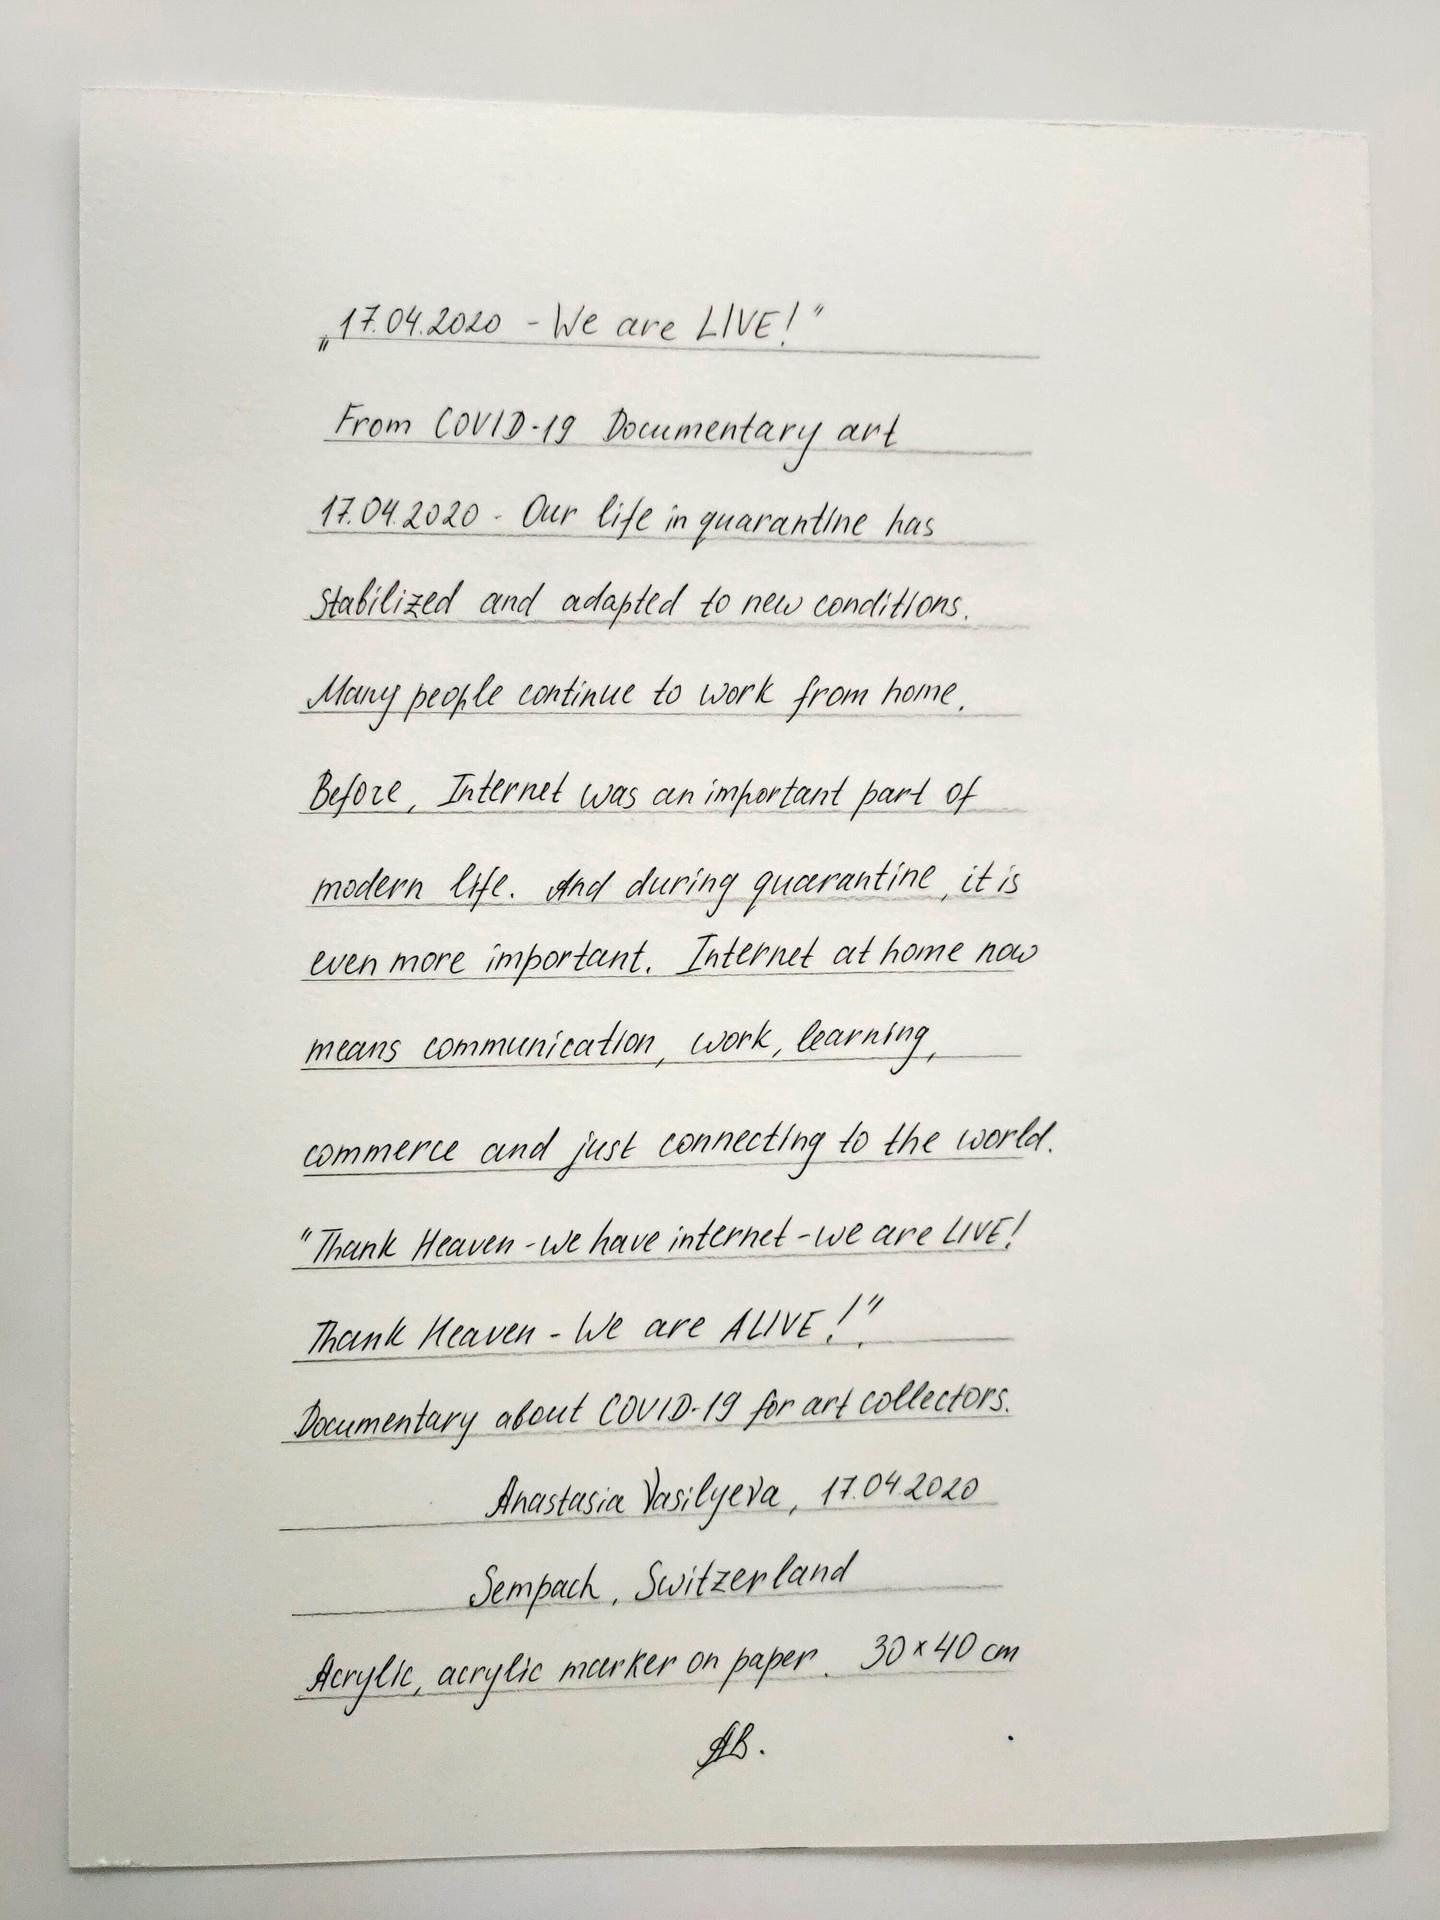 „17.04.2020 - We are LIVE!"
From COVID-19 Documentary art
17.04.2020 - Our life in quarantine has
stabilized and adapted to new conditions.
Many people continue to work from home.
Before, Internet was an important part of
modern life. And during quarantine, it is
even more important. Internet at home now
means communication, work, learning,
commerce and just connecting to the world.
"Thank Heaven - we have internet - we are LIVE!
Thank Heaven - We are ALIVE!".
Documentary about COVID-19 for art collectors.
Anastasia Vasilyeva, 17.04.2020
Sempach, Switzerland
Acrylic, acrylic marker on paper. 30×40 cm
AB.